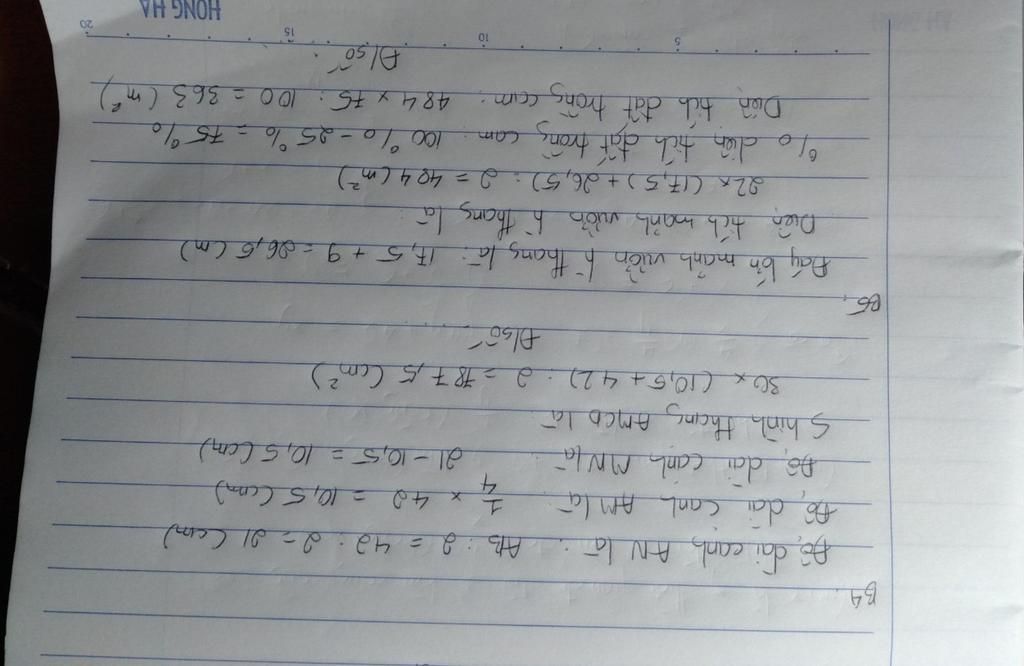 B4.
Độ dài cạnh AN là : AB : 2 = 42 : 2 = 21 (cm)
Độ dài cạnh AM là : 1/4 x 42 = 10,5 (cm)
Độ dài cạnh MN là : 21 - 10,5 = 10,5 (cm)
S hình thang AMCD là :
30 x (10,5 + 42) : 2 = 787,5 (cm²)
Đ/số ......
B5.
Đáy lớn mảnh vườn h thang là : 17,5 + 9 = 26,5 (m)
Diện tích mảnh vườn h thang là :
22 x (17,5) + 26,5) : 2 = 484 (m²)
% diện tích đất trồng cam : 100% - 25% = 75%
Diện tích đất trồng cam : 484 x 75 : 100 = 363 (m²)
Đ/số :
5 10 15 20
HONG HA